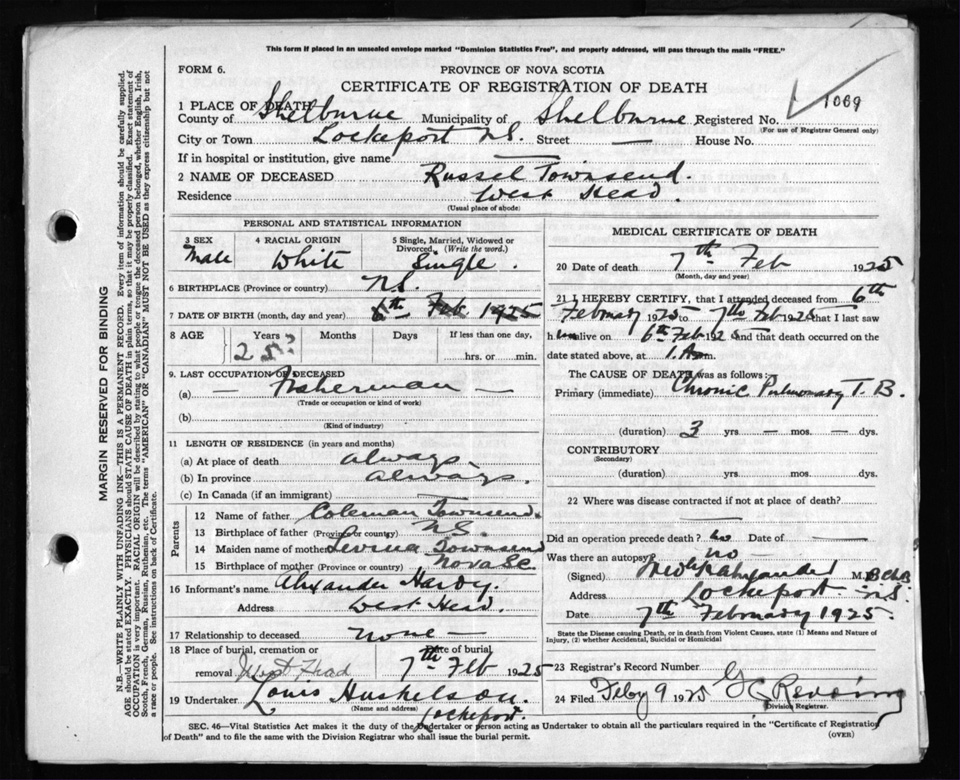 This form if placed in an unsealed envelope marked "Dominion Statistics Free", and properly addressed, will pass through the mails "FREE."
FORM 6.
PROVINCE OF NOVA SCOTIA
CERTIFICATE OF REGISTRATION OF DEATH
1 PLACE OF DEATH
County of Shelburne Municipality of Shelburne Registered No. 1069
(For use of Registrar General only)
City or Town Lockeport N.S. Street — House No.
If in hospital or institution, give name —
2 NAME OF DECEASED Russel Townsend.
Residence West Head.
(Usual place of abode)
PERSONAL AND STATISTICAL INFORMATION
3 SEX 4 RACIAL ORIGIN 5 Single, Married, Widowed or Divorced. (Write the word.)
Male White Single.
6 BIRTHPLACE (Province or country) N.S.
7 DATE OF BIRTH (month, day and year) 6th Feb 1925
8 AGE Years Months Days If less than one day,
25? hrs. or min.
9. LAST OCCUPATION OF DECEASED
(a) — Fisherman —
(Trade or occupation or kind of work)
(b)
(Kind of industry)
11 LENGTH OF RESIDENCE (in years and months)
(a) At place of death always
(b) In province always.
(c) In Canada (if an immigrant) —
Parents
12 Name of father Coleman Townsend.
13 Birthplace of father (Province or country) N.S.
14 Maiden name of mother Levina Townsend
15 Birthplace of mother (Province or country) Nova Sc.
16 Informant's name Alxander Hardy.
Address West Head.
17 Relationship to deceased none —
18 Place of burial, cremation or Date of burial
removal West Head 7th Feb 1925
19 Undertaker Louis Huskelson.
(Name and address) Lockeport.
MEDICAL CERTIFICATE OF DEATH
20 Date of death 7th Feb 1925
(Month, day and year)
21 I HEREBY CERTIFY, that I attended deceased from 6th
February 1925 to 7th Feb 1925 that I last saw
him alive on 6th Feb 1925 and that death occurred on the
date stated above, at 1. A m.
The CAUSE OF DEATH was as follows:
Primary (immediate) Chronic Pulmonary T. B.
(duration) 3 yrs. — mos. — dys.
CONTRIBUTORY
(Secondary)
(duration) yrs. mos. dys.
22 Where was disease contracted if not at place of death?
Did an operation precede death? no Date of —
Was there an autopsy? no —
(Signed) M. B Ch.B
Address Lockeport N.S.
Date 7th February 1925.
State the Disease causing Death, or in death from Violent Causes, state (1) Means and Nature of
Injury, (2) whether Accidental, Suicidal or Homicidal
23 Registrar's Record Number
24 Filed Feby 9 1925
Division Registrar.
SEC. 46—Vital Statistics Act makes it the duty of the Undertaker or person acting as Undertaker to obtain all the particulars required in the "Certificate of Registration
of Death" and to file the same with the Division Registrar who shall issue the burial permit.
(OVER)
MARGIN RESERVED FOR BINDING
N.B.—WRITE PLAINLY WITH UNFADING INK—THIS IS A PERMANENT RECORD. Every item of information should be carefully supplied.
AGE should be stated EXACTLY. PHYSICIANS should STATE CAUSE OF DEATH in plain terms, so that it may be properly classified. Exact statement of
OCCUPATION is very important. RACIAL ORIGIN will be described by stating to what people or tongue the deceased person belonged, whether English, Irish,
Scotch, French, German, Russian, Ruthenian, etc. The terms "AMERICAN" or "CANADIAN" MUST NOT BE USED as they express citizenship but not
a race or people. See instructions on back of Certificate.